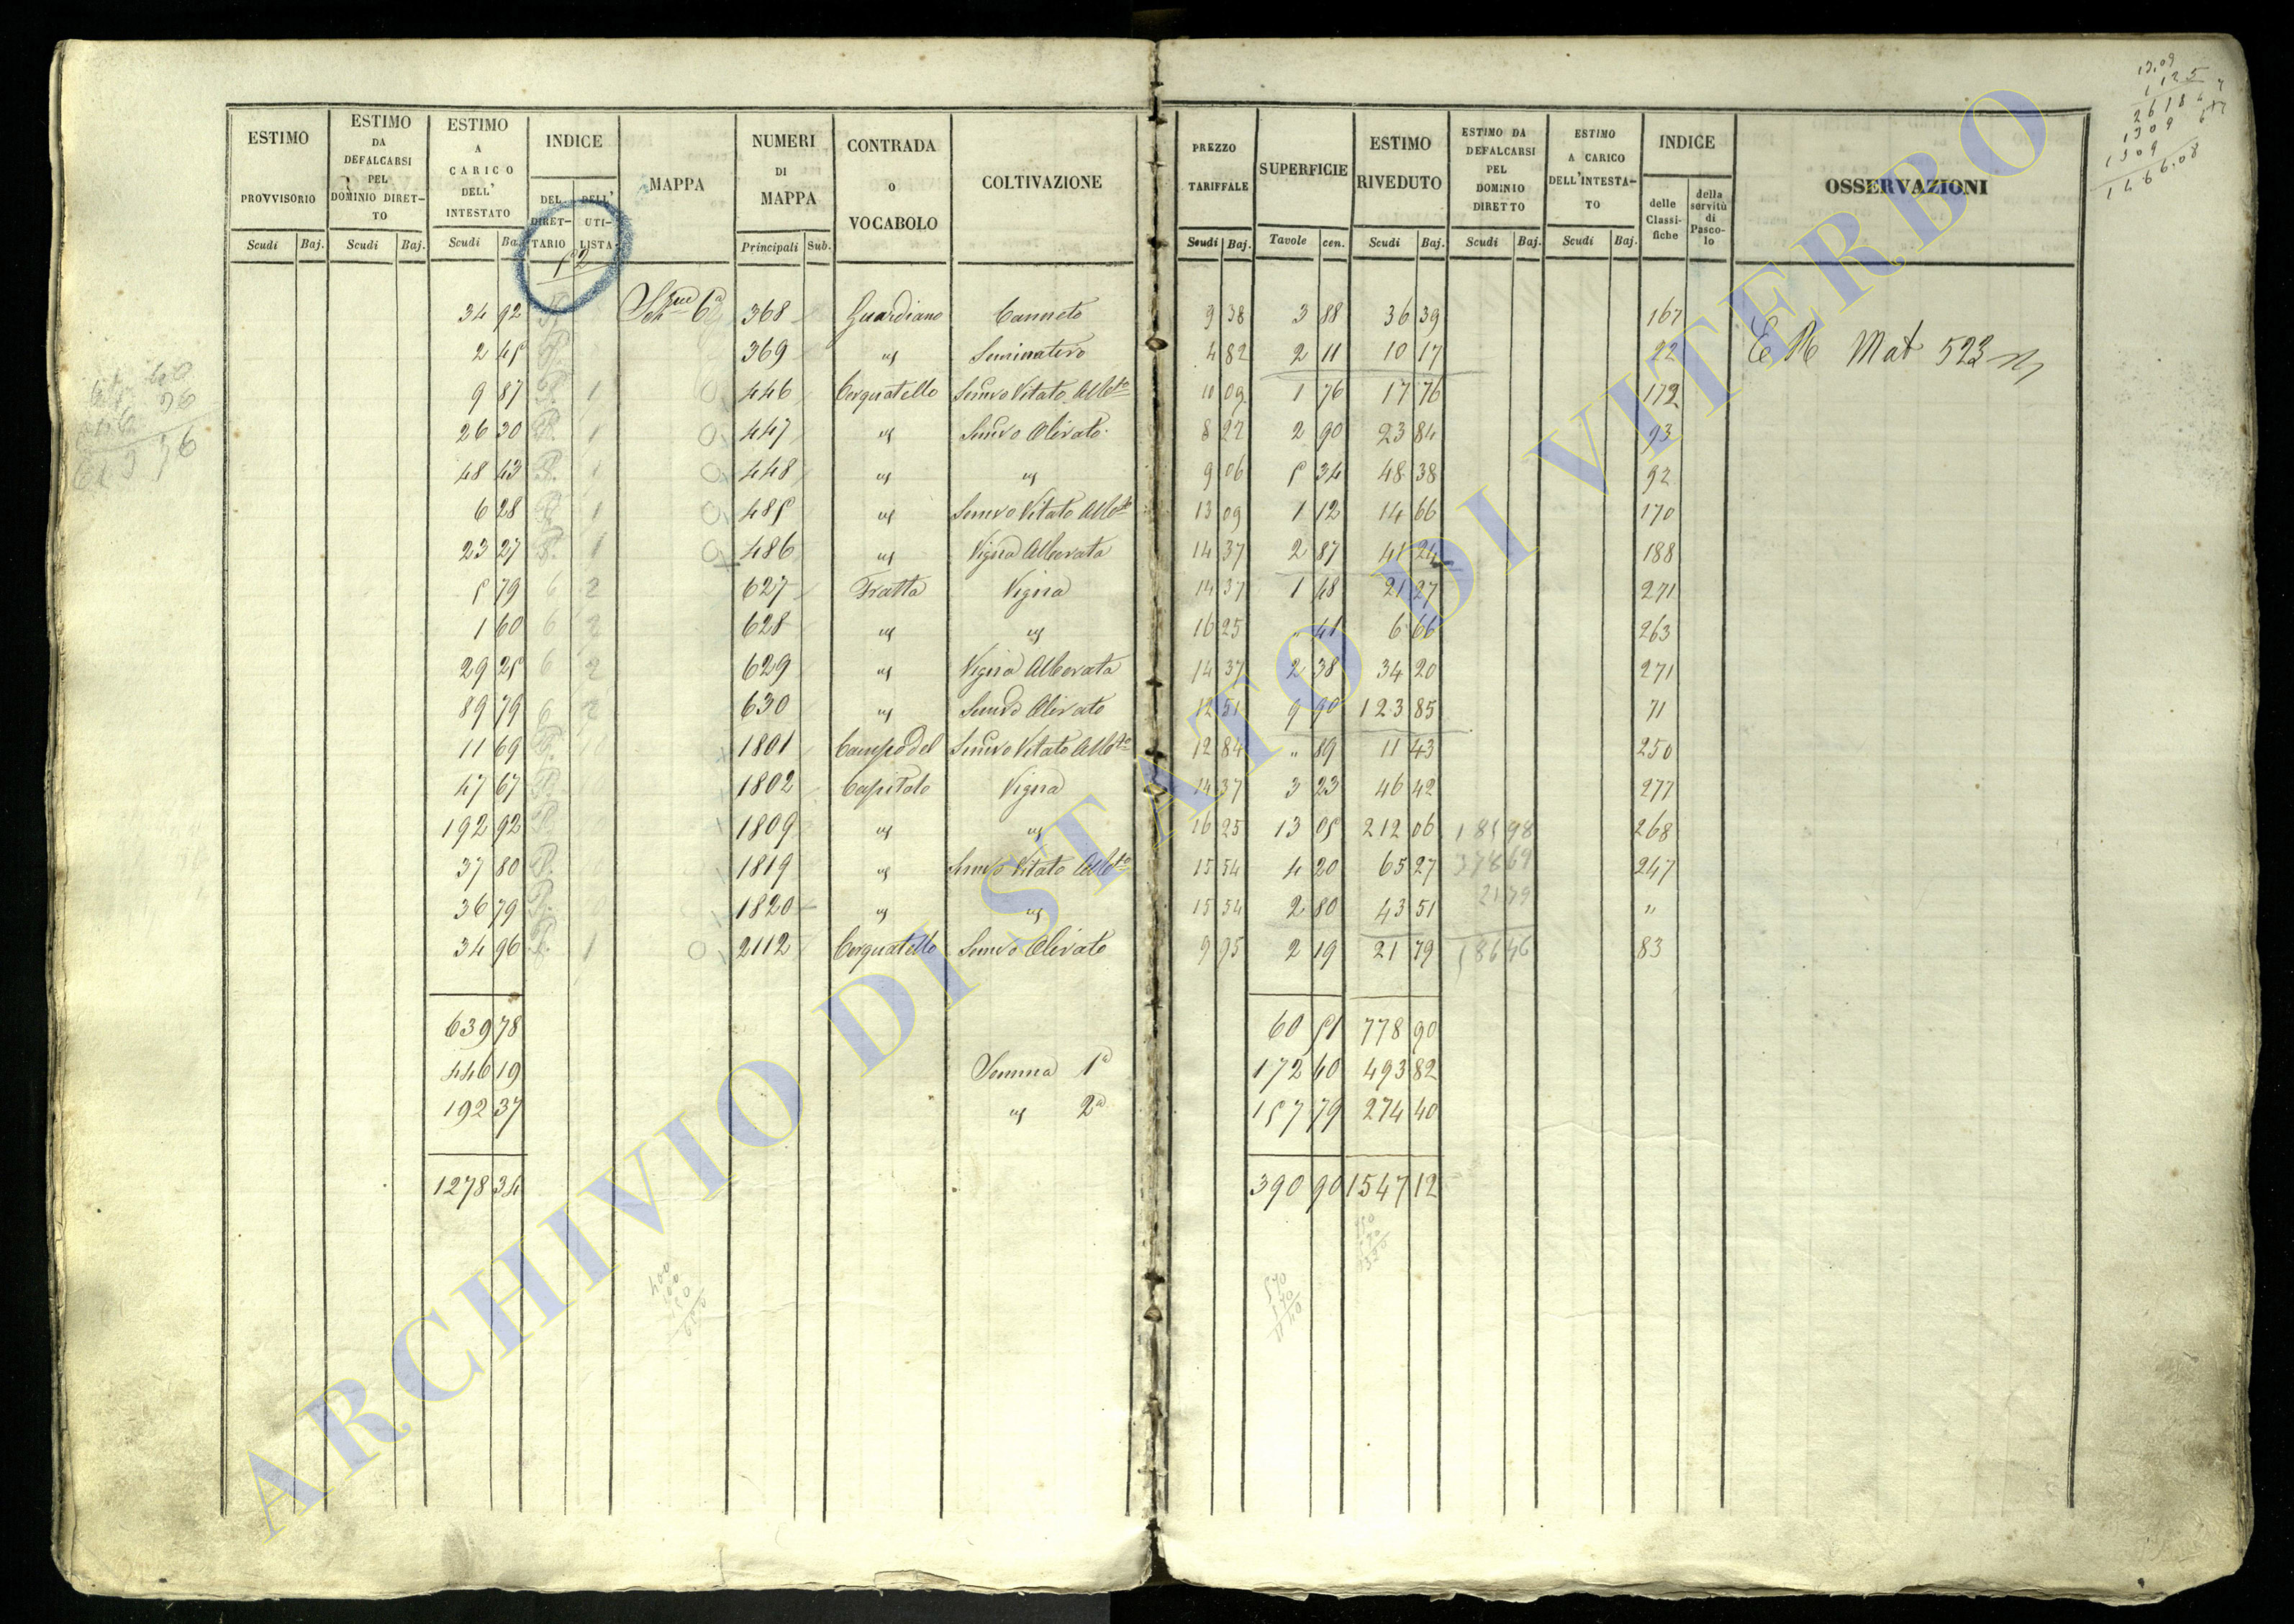 ESTIMO PROVVISORIO Scudi Baj.
ESTIMO DA DEFALCARSI PEL DOMINIO DIRETTO Scudi Baj.
ESTIMO A CARICO DELL' INTESTATO Scudi Ba
INDICE DEL DIRETTARIO DELL' UTILISTA
MAPPA
NUMERI DI MAPPA Principali Sub.
CONTRADA O VOCABOLO
COLTIVAZIONE
PREZZO TARIFFALE Scudi Baj.
SUPERFICIE Tavole cen.
ESTIMO RIVEDUTO Scudi Baj.
ESTIMO DA DEFALCARSI PEL DOMINIO DIRETTO Scudi Baj.
ESTIMO A CARICO DELL'INTESTATO Scudi Baj.
INDICE delle Classifiche della servitù di Pascolo
OSSERVAZIONI
52
34 92 6a 368 Guardiano Canneto 9 38 3 88 36 39 167
2 45 369 " Seminativo 4 82 2 11 10 17 22 Mat 523
9 87 1 446 Cerquatello Semvo Vitato Albto 10 09 1 76 17 76 172
26 30 1 447 " Semvo Olivato 8 22 2 90 23 84 93
48 43 1 448 " " 9 06 5 34 48 38 92
6 28 1 485 " Semvo Vitato Albto 13 09 1 12 14 66 170
23 27 1 486 " Vigna Alborata 14 37 2 87 41 24 188
5 79 6 2 627 Fratta Vigna 14 37 1 48 21 27 271
1 60 6 2 628 " " 16 25 " 41 6 66 263
29 25 6 2 629 " Vigna Alborata 14 37 2 38 34 20 271
89 79 6 2 630 " Semvo Olivato 12 51 9 90 123 85 71
11 69 10 1801 Campo del Semvo Vitato Albto 12 84 " 89 11 43 250
47 67 10 1802 Capitolo Vigna 14 37 3 23 46 42 277
192 92 1809 " " 16 25 13 05 212 06 268
37 80 1819 " Semvo Vitato Albto 15 54 4 20 65 27 378 69 247
36 79 1820 " " 15 54 2 80 43 51 21 79 "
34 96 1 2112 Cerquatello Semvo Olivato 9 95 2 19 21 79 586 46 83
639 78 60 51 778 90
446 19 Somma 1a 172 40 493 82
192 37 " 2a 157 79 274 40
1278 34 390 90 1547 12
13.09
125
2618
1309
1466.08
ARCHIVIO DI STATO DI VITERBO